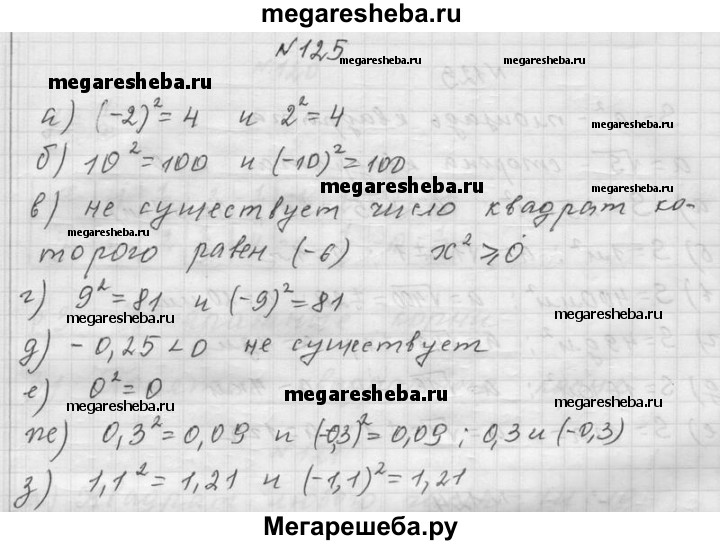 megaresheba.ru
№125
megaresheba.ru megaresheba.ru
megaresheba.ru
а) (-2)²=4 и 2²=4
megaresheba.ru
б) 10²=100 и (-10)²=100
megaresheba.ru megaresheba.ru
в) не существует число квадрат ко-
торого равен (-6) x²⩾0
г) 9²=81 и (-9)²=81
megaresheba.ru megaresheba.ru
д) -0,25<0 не существует
е) 0²=0
megaresheba.ru megaresheba.ru megaresheba.ru
ж) 0,3²=0,09 и (-0,3)²=0,09; 0,3 и (-0,3)
з) 1,1²=1,21 и (-1,1)²=1,21
megaresheba.ru megaresheba.ru
Мегарешеба.ру